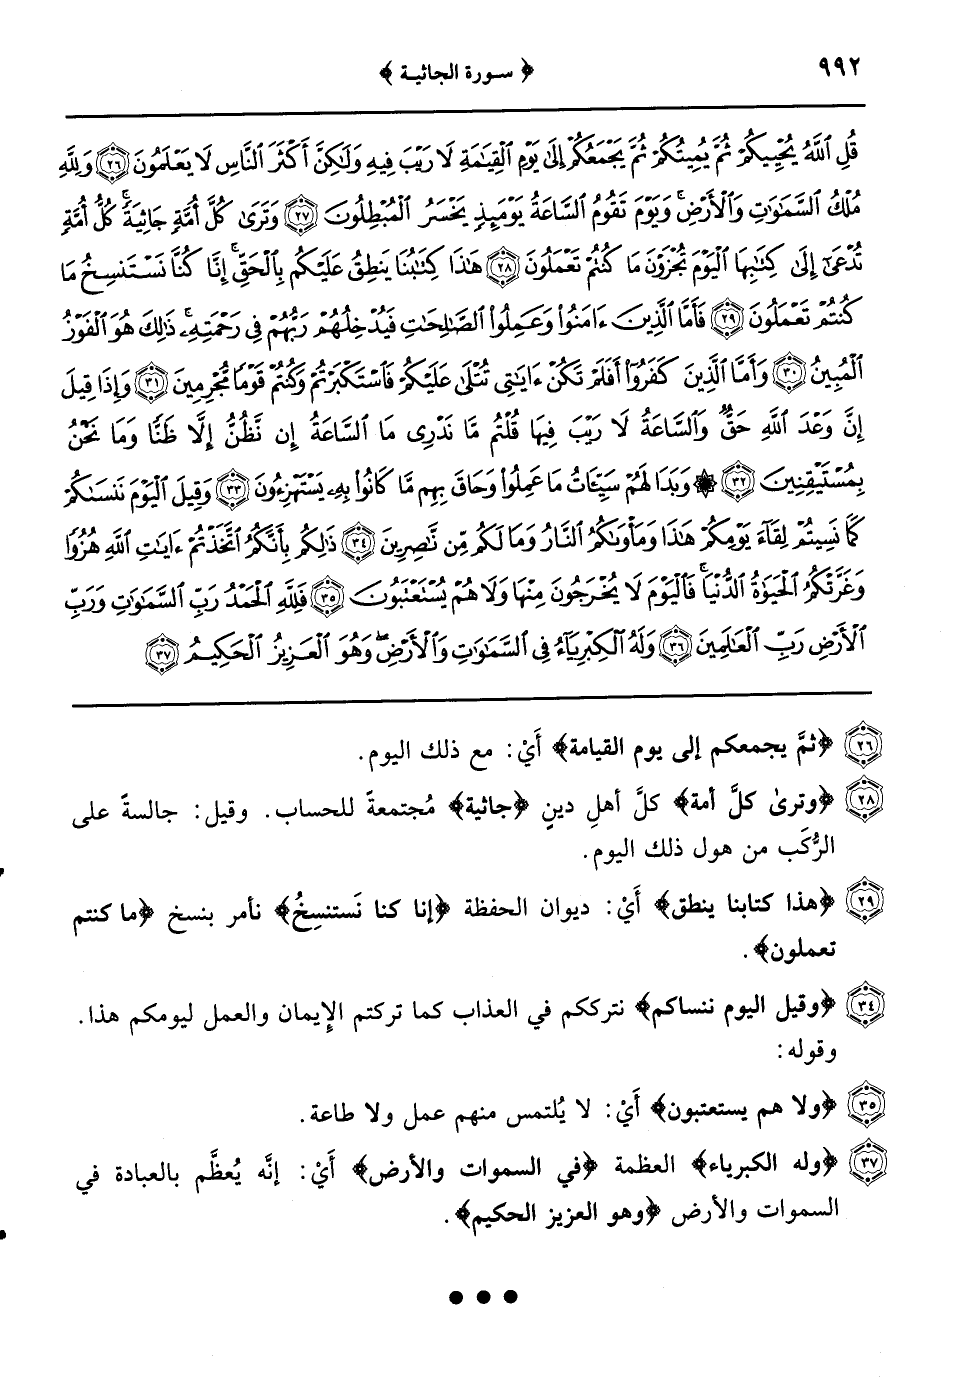 ٩٩٢
﴿ سورة الجاثية ﴾
قُلِ ٱللَّهُ يُحْيِيكُمْ ثُمَّ يُمِيتُكُمْ ثُمَّ يَجْمَعُكُمْ إِلَىٰ يَوْمِ ٱلْقِيَٰمَةِ لَا رَيْبَ فِيهِ وَلَٰكِنَّ أَكْثَرَ ٱلنَّاسِ لَا يَعْلَمُونَ ٢٦ وَلِلَّهِ
مُلْكُ ٱلسَّمَٰوَٰتِ وَٱلْأَرْضِ ۚ وَيَوْمَ تَقُومُ ٱلسَّاعَةُ يَوْمَئِذٍ يَخْسَرُ ٱلْمُبْطِلُونَ ٢٧ وَتَرَىٰ كُلَّ أُمَّةٍ جَاثِيَةً ۚ كُلُّ أُمَّةٍ
تُدْعَىٰٓ إِلَىٰ كِتَٰبِهَا ٱلْيَوْمَ تُجْزَوْنَ مَا كُنتُمْ تَعْمَلُونَ ٢٨ هَٰذَا كِتَٰبُنَا يَنطِقُ عَلَيْكُم بِٱلْحَقِّ ۚ إِنَّا كُنَّا نَسْتَنسِخُ مَا
كُنتُمْ تَعْمَلُونَ ٢٩ فَأَمَّا ٱلَّذِينَ ءَامَنُوا۟ وَعَمِلُوا۟ ٱلصَّٰلِحَٰتِ فَيُدْخِلُهُمْ رَبُّهُمْ فِى رَحْمَتِهِۦ ۚ ذَٰلِكَ هُوَ ٱلْفَوْزُ
ٱلْمُبِينُ ٣٠ وَأَمَّا ٱلَّذِينَ كَفَرُوٓا۟ أَفَلَمْ تَكُنْ ءَايَٰتِى تُتْلَىٰ عَلَيْكُمْ فَٱسْتَكْبَرْتُمْ وَكُنتُمْ قَوْمًا مُّجْرِمِينَ ٣١ وَإِذَا قِيلَ
إِنَّ وَعْدَ ٱللَّهِ حَقٌّ وَٱلسَّاعَةُ لَا رَيْبَ فِيهَا قُلْتُم مَّا نَدْرِى مَا ٱلسَّاعَةُ إِن نَّظُنُّ إِلَّا ظَنًّا وَمَا نَحْنُ
بِمُسْتَيْقِنِينَ ٣٢ ۞ وَبَدَا لَهُمْ سَيِّـَٔاتُ مَا عَمِلُوا۟ وَحَاقَ بِهِم مَّا كَانُوا۟ بِهِۦ يَسْتَهْزِءُونَ ٣٣ وَقِيلَ ٱلْيَوْمَ نَنسَىٰكُمْ
كَمَا نَسِيتُمْ لِقَآءَ يَوْمِكُمْ هَٰذَا وَمَأْوَىٰكُمُ ٱلنَّارُ وَمَا لَكُم مِّن نَّٰصِرِينَ ٣٤ ذَٰلِكُم بِأَنَّكُمُ ٱتَّخَذْتُمْ ءَايَٰتِ ٱللَّهِ هُزُوًا
وَغَرَّتْكُمُ ٱلْحَيَوٰةُ ٱلدُّنْيَا ۚ فَٱلْيَوْمَ لَا يُخْرَجُونَ مِنْهَا وَلَا هُمْ يُسْتَعْتَبُونَ ٣٥ فَلِلَّهِ ٱلْحَمْدُ رَبِّ ٱلسَّمَٰوَٰتِ وَرَبِّ
ٱلْأَرْضِ رَبِّ ٱلْعَٰلَمِينَ ٣٦ وَلَهُ ٱلْكِبْرِيَآءُ فِى ٱلسَّمَٰوَٰتِ وَٱلْأَرْضِ ۖ وَهُوَ ٱلْعَزِيزُ ٱلْحَكِيمُ ٣٧
٢٦ ﴿ثمَّ يجمعكم إلى يوم القيامة﴾ أَيْ: مع ذلك اليوم.
٢٨ ﴿وترىٰ كلَّ أمة﴾ كلَّ أهلِ دينٍ ﴿جاثية﴾ مُجتمعةً للحساب. وقيل: جالسةً على
الرُّكَب من هول ذلك اليوم.
٢٩ ﴿هذا كتابنا ينطق﴾ أَيْ: ديوان الحفظة ﴿إنا كنا نَستنسِخُ﴾ نأمر بنسخ ﴿ما كنتم
تعملون﴾.
٣٤ ﴿وقيل اليوم ننساكم﴾ نترككم في العذاب كما تركتم الإِيمان والعمل ليومكم هذا.
وقوله:
٣٥ ﴿ولا هم يستعتبون﴾ أَيْ: لا يُلتمس منهم عمل ولا طاعة.
٣٧ ﴿وله الكبرياء﴾ العظمة ﴿في السموات والأرض﴾ أَيْ: إنَّه يُعظَّم بالعبادة في
السموات والأرض ﴿وهو العزيز الحكيم﴾.